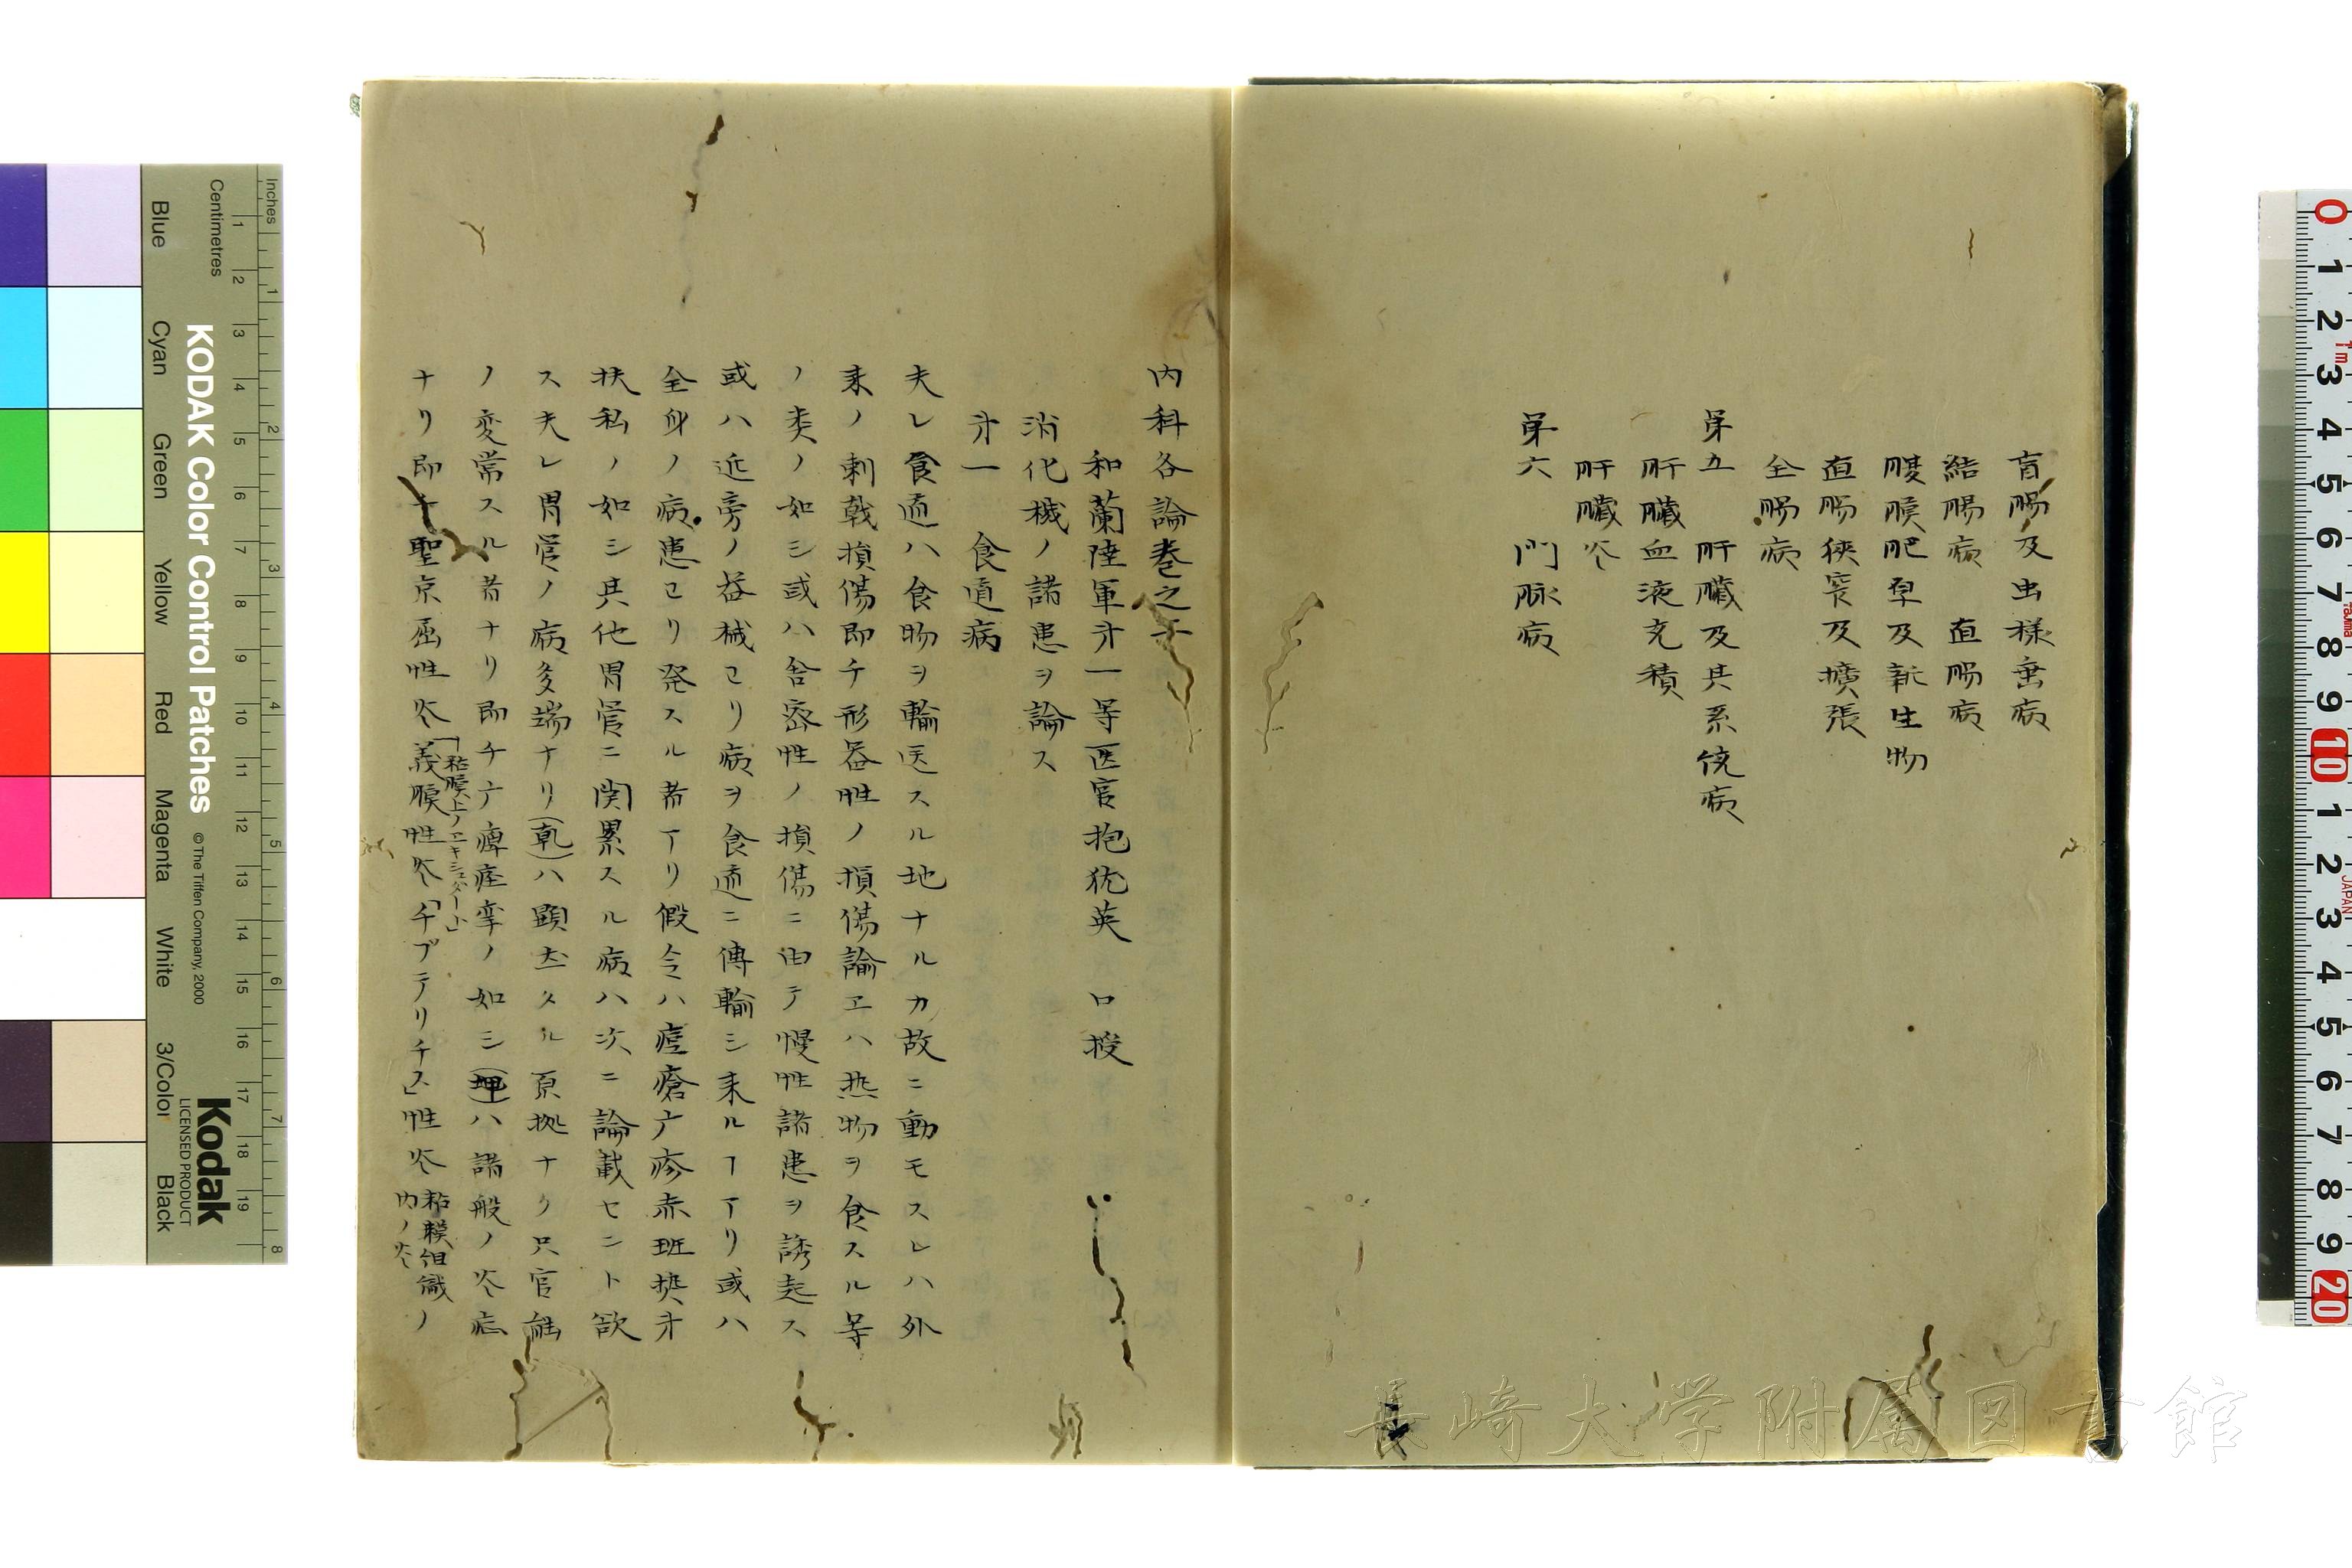 盲腸及虫様垂病
結腸病　直腸病
腹膜肥厚及新生物
直腸狭窄及擴張
全腸病
第五　肝臓及其系統病
肝臓血液充積
肝臓炎
第六　門脉病
内科各論巻之
和蘭陸軍才一等医官抱独英　口授
消化機ノ諸患ヲ論ス
才一　食道病
夫レ食道ハ食物ヲ輸送スル地ナルカ故ニ動モスレハ外
来ノ刺戟損傷即チ形器性ノ損傷諭ヱハ熱物ヲ食スル等
ノ类ノ如シ或ハ舎密性ノ損傷ニ由テ慢性諸患ヲ誘起ス
或ハ近旁ノ器械ヨリ病ヲ食道ニ傳輸シ来ルヿアリ或ハ
全身ノ病患ヨリ発スル者アリ假令ハ痘瘡疹赤班熱才
扶私ノ如シ其他胃管ニ関累スル病ハ次ニ論載セント欲
ス夫レ胃管ノ病多端ナリ(乾)ハ顕著タル原拠ナク只官能
ノ変常スル者ナリ即チ痺痙攣ノ如シ(坤)ハ諸般ノ炎症
ナリ即チ聖京屈性炎「粘膜上ノエキシュダート」義膜性炎「チフテリチス」性炎粘膜組織ノ内ノ炎ノ
長崎大学附属図書館
KODAK Color Control Patches
© The Tiffen Company, 2000
Kodak
LICENSED PRODUCT
Inches
Centimetres
Blue
Cyan
Green
Yellow
Red
Magenta
White
3/Color
Black
1 2 3 4 5 6 7 8 9 10 11 12 13 14 15 16 17 18 19
1 2 3 4 5 6 7 8
0 1 2 3 4 5 6 7 8 9 10 1 2 3 4 5 6 7 8 9 20
1m
JAPAN